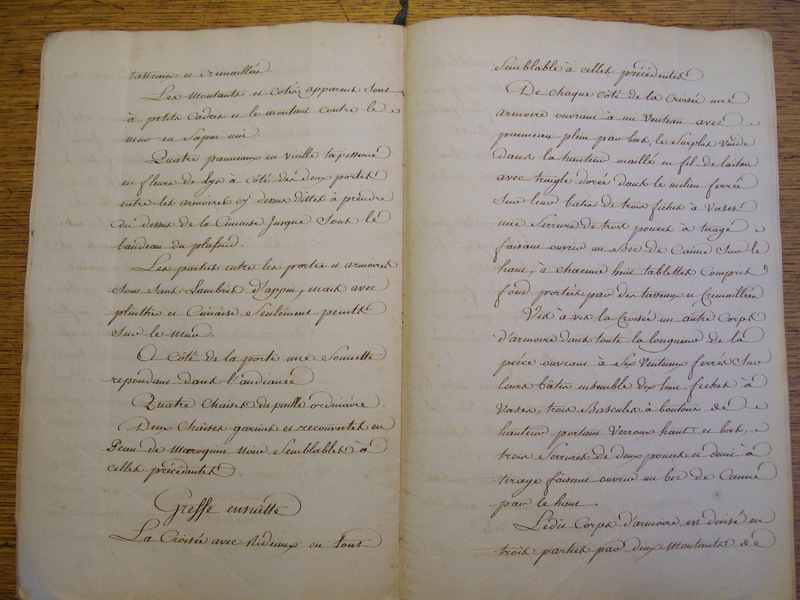 tasseaux et Cremaillée.
Les Montants et cotés apparens Sont
à petits Cadres et le montant contre le
mur en Sapin uni.
Quatre panneaux en vieille tapisserie
en fleurs de Lys à Côté des deux portes
entre les armoires cy dessus dittes à prendre
du dessus de la Cimaise Jusque Sous le
bandeau du plafond.
Les parties entre les portes et armoires
Sont Sans Lambris d'appui, mais avec
plinthes et Cimaise Seulement peints
Sur le Mur.
A côté de la porte une Sonnette
repondant dans l'audiance
Quatre Chaises de paille ordinaire.
Deux Chaises garnies et recouvertes en
Peau de Maroquin Noir Semblables à
celles précédentes.
Greffe ensuitte
La Croisée avec Rideaux en Tout
Semblable à celles précédentes
De chaque côté de la Croisée une
armoire ouvrant à un Venteau avec
panneau plein par bas, le Surplus Vuide
dans la hauteur maillé en fil de laiton
avec tringle dorée dans le milieu ferrée
Sur leur bâtis de trois fiches à Vases
une Serrure de trois pouces à tirage
faisant ouvrir un Bec de Canne Sur le
haut, à chacune huit tablettes Compris
fond portées par des tasseaux et Cremaillées
Vis à vis la Croisée un autre Corps
d'armoire dans toute la longueur de la
pièce ouvrant à Six Venteaux ferrés Sur
leurs bâtis ensemble dix huit fiches à
Vases, trois Bascules à boutons de
hauteur portant Verroux haut et bas,
trois Serrures de deux pouces et demi à
tirage faisant ouvrir un bec de Canne
par le haut.
Ledit Corps d'armoire est divisé en
trois parties par deux Montants de